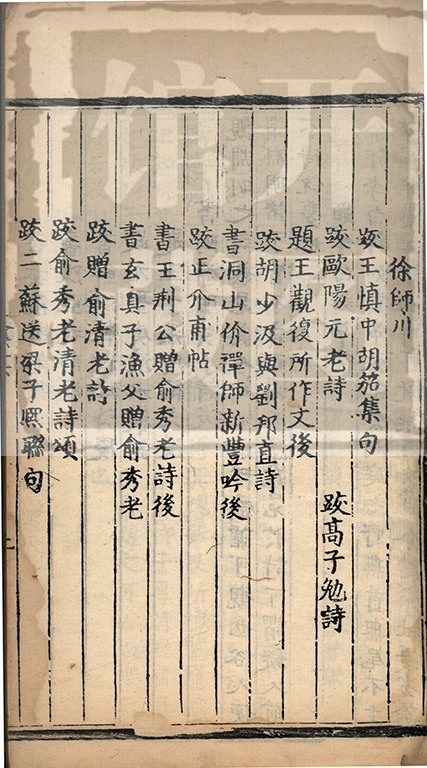 徐師川
跋王慎中胡笳集句
跋歐陽元老詩 跋高子勉詩
題王觀復所作文後
跋胡少汲與劉邦直詩
書洞山价禪師新豐吟後
跋王介甫帖
書王荆公贈俞秀老詩後
書玄真子漁父贈俞秀老
跋贈俞清老詩
跋俞秀老清老詩頌
跋二蘇送梁子熈聯句